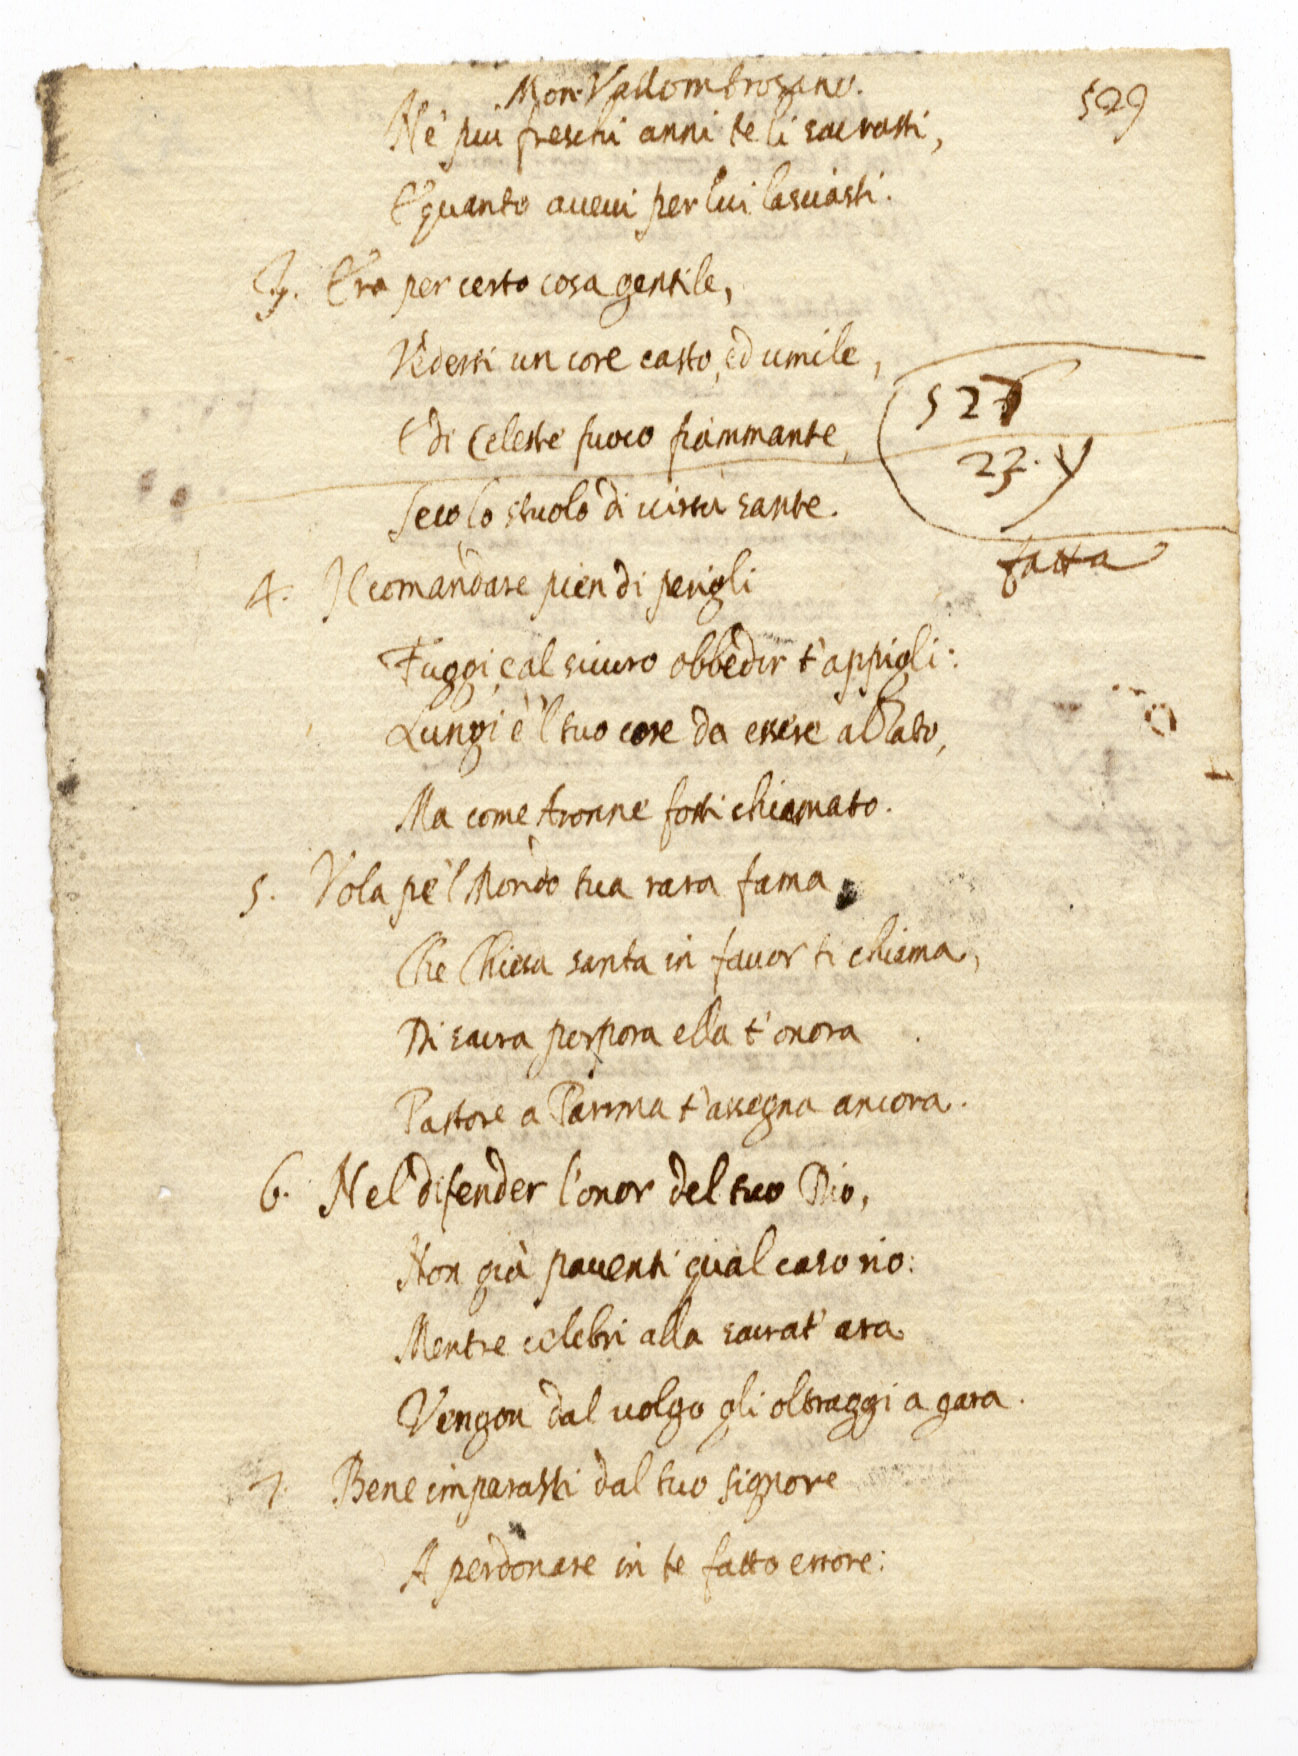 Mon. Vallombrosano.
529
Nè più freschi anni te li sacrasti,
E quanto avevi per lui lasciasti.
3. Era per certo cosa gentile,
Vederti un core casto, ed umile,
E di Celeste fuoco fiammante,
Seco lo stuolo di virtù sante.
527
23. y
fatta
4. Il comandare pien di perigli
Fuggi, e al sicuro obbedir t'appigli:
Lungi è 'l tuo core da essere alzato,
Ma come Aronne fosti chiamato.
5. Vola pe'l Mondo tua rara fama,
Che Chiesa santa in favor ti chiama,
Di sacra porpora ella t'onora
Pastore a Parma t'assegna ancora.
6. Nel difender l'onor del tuo Dio,
Non già paventi qual caso rio:
Mentre celebri alla sacrat' ara
Vengon dal volgo gli oltraggi a gara.
7. Bene imparasti dal tuo Signore
A perdonare in te fatto errore: